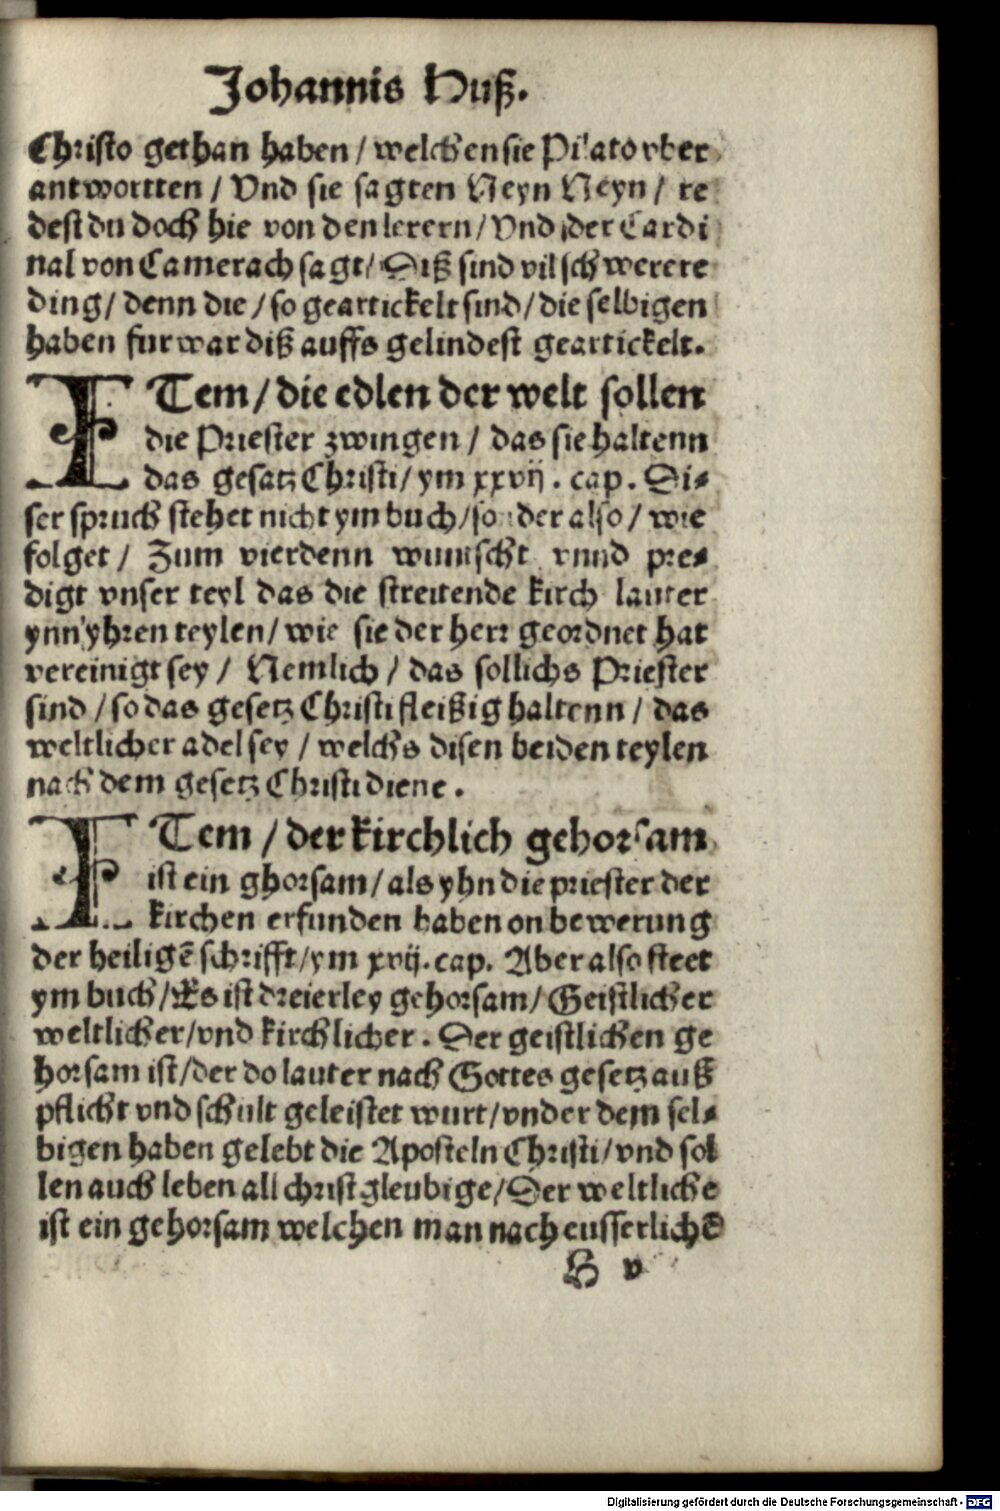 Johannis Huß.
Christo gethan haben / welchen sie Pilato vber
antwortten / Vnd sie sagten Neyn Neyn / re
dest du doch hie von den lerern / Vnd der Cardi
nal von Camerach sagt / Diß sind vil schwerere
ding / denn die / so geartickelt sind / die selbigen
haben furwar diß auffs gelindest geartickelt.
ITem / die edlen der welt sollen
die Priester zwingen / das sie haltenn
das gesatz Christi / ym xxvij. cap. Di⸗
ser spruch stehet nicht ym buch / sonder also / wie
folget / Zum vierdenn wunscht vnnd pre⸗
digt vnser teyl das die streitende kirch lauter
ynn yhren teylen / wie sie der herr geordnet hat
vereinigt sey / Nemlich / das sollichs Priester
sind / so das gesetz Christi fleißig haltenn / das
weltlicher adel sey / welchs disen beiden teylen
nach dem gesetz Christi diene.
ITem / der kirchlich gehorsam
ist ein ghorsam / als yhn die priester der
kirchen erfunden haben on bewerung
der heiligē schrifft / ym xvij. cap. Aber also steet
ym buch / Es ist dreierley gehorsam / Geistlicher
weltlicher / vnd kirchlicher. Der geistlichen ge
horsam ist / der do lauter nach Gottes gesetz auß
pflicht vnd schult geleistet wurt / vnder dem sel⸗
bigen haben gelebt die Aposteln Christi / vnd sol
len auch leben all christgleubige / Der weltliche
ist ein gehorsam welchen man nach eusserlichē
H v
Digitalisierung gefördert durch die Deutsche Forschungsgemeinschaft - DFG